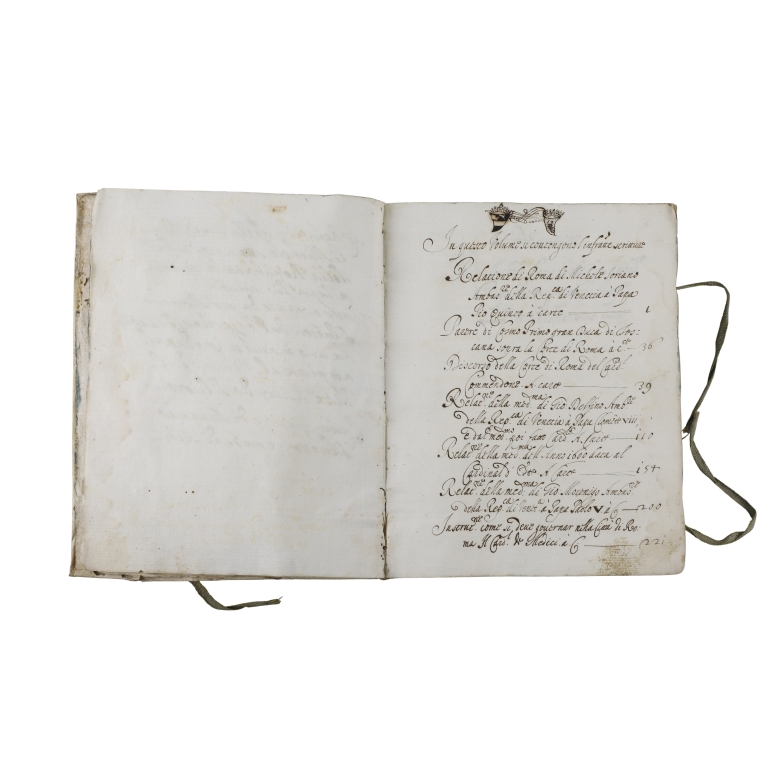 In questo Volume si contengono l'infratte scritture
Relatione di Roma di Michele Soriano
Ambre della Repca di Venetia à Papa
Pio Quinto à carte 1
Parere di Cosmo Primo gran Duca di Tos:
cana sopra la Corte di Roma à cte 36
Discorso della Corte di Roma del Cardl
Commendone A carte 39
Relatne della medma di Gio Delfino Ambre
della Repca di Venetia à Papa Clemte VIII
e dal medmo poi fatto Cardle A carte 110
Relatne della medma dell'Anno 1600 data al
Cardinal d' Este A carte 154
Relatne della medma di Gio Mocenigo Ambre
della Repca di Venetia à Papa Paolo V à c 200
Instrutne come si deve governar nella Corte di Ro:
ma Il Cardl de Medici à c 221